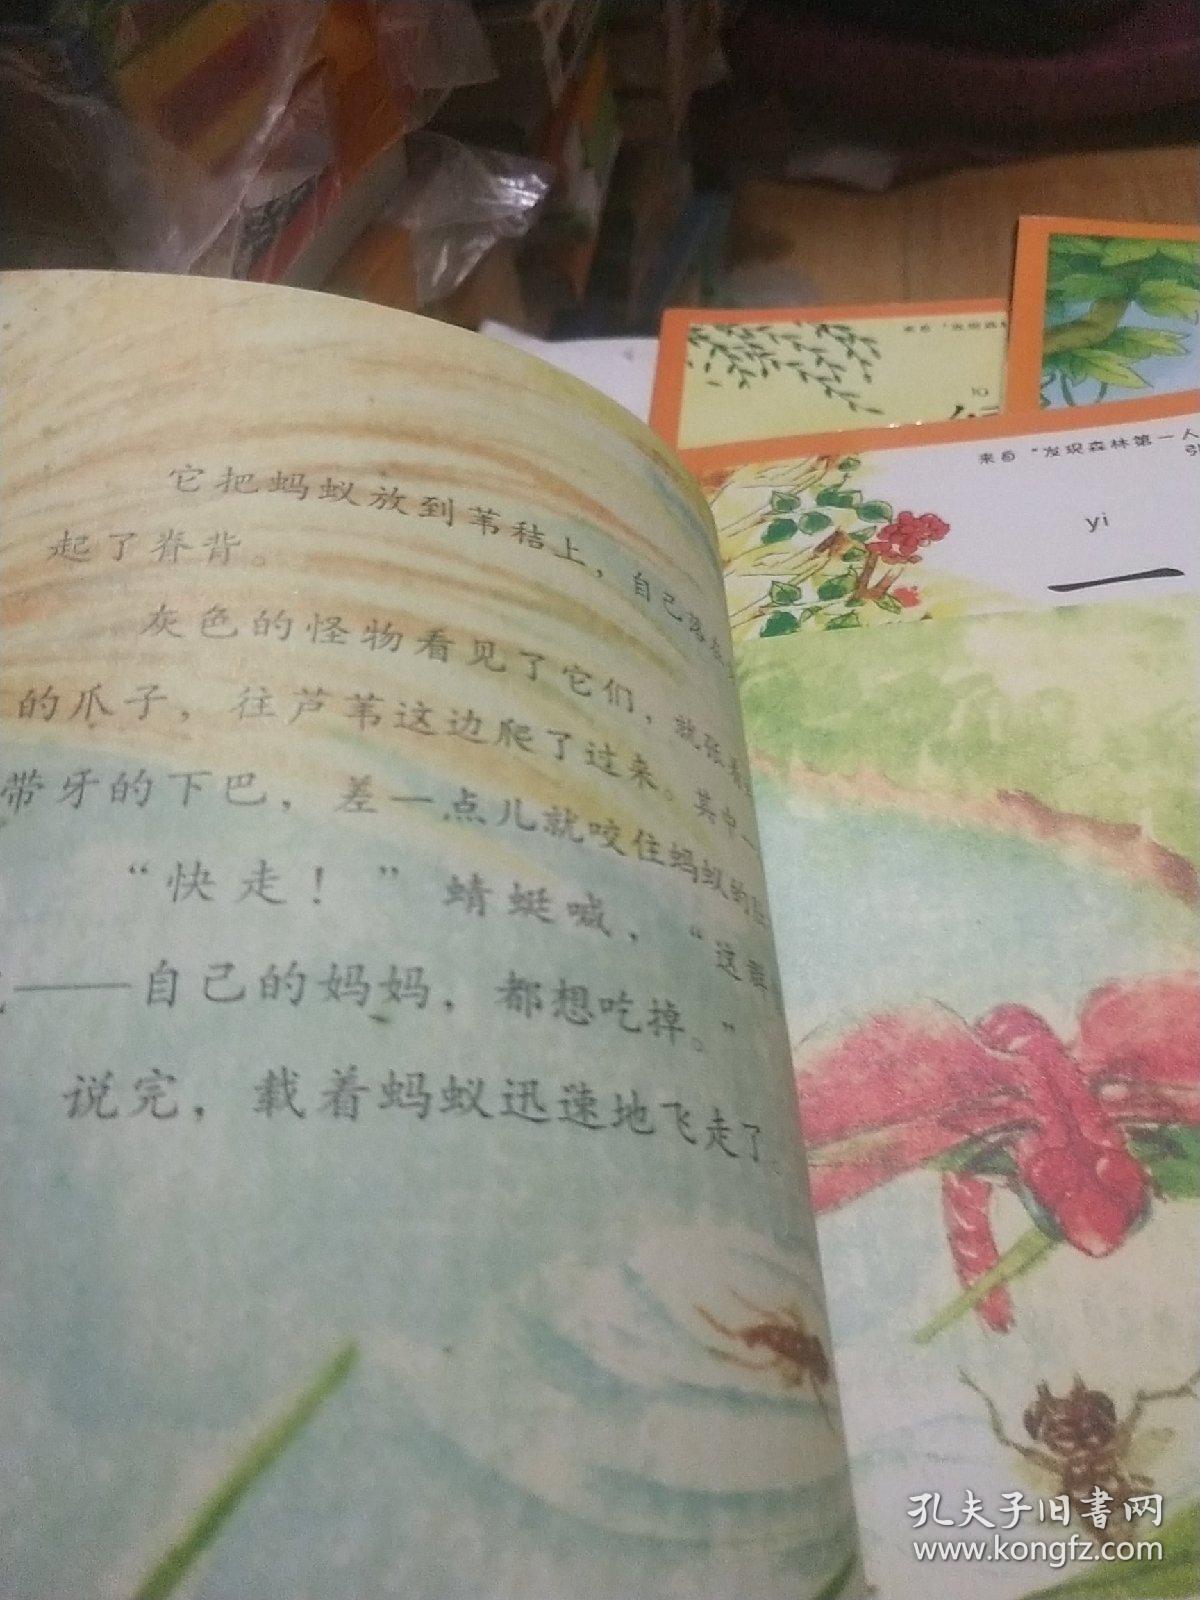 它把蚂蚁放到苇秸上，自己落在
起了脊背。
灰色的怪物看见了它们，就张着
的爪子，往芦苇这边爬了过来。其中一
带牙的下巴，差一点儿就咬住蚂蚁的
“快走！”蜻蜓喊，“这群
——自己的妈妈，都想吃掉。”
说完，载着蚂蚁迅速地飞走了。
来自“发现森
10
来自“发现森林第一人
引
yi
一
孔夫子旧书网
www.kongfz.com